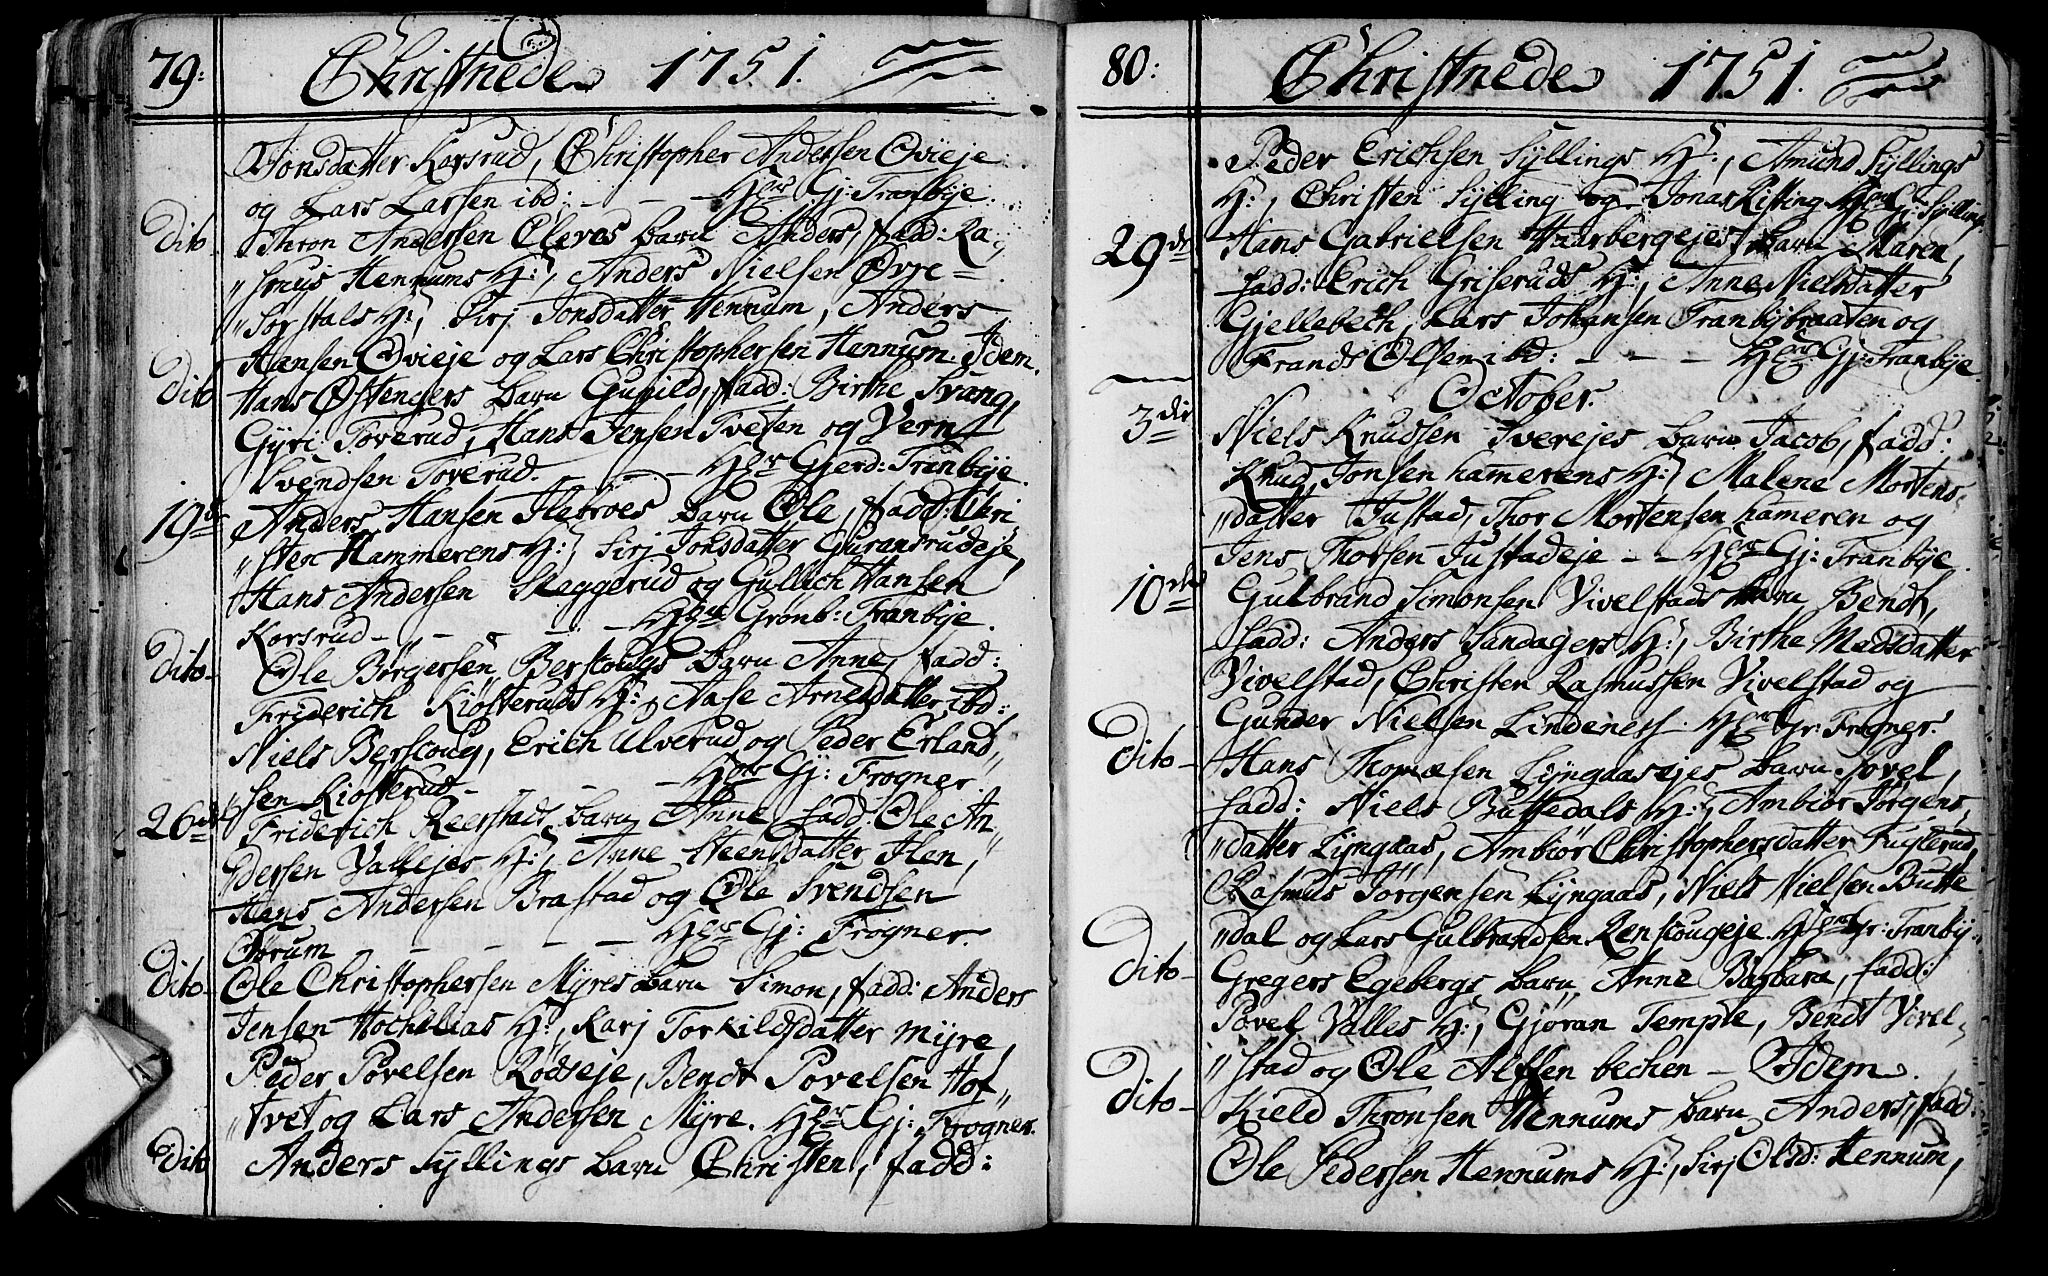 79: Christnede 1751.
Jonsdatter Korsrud, Christopher Andersen Qvieje
og Lars Larsen ibd: - - - Hr Gj: Tranbije.
Dito Thron Andersen Elevas barn Anders, fadd: Ra-
"smus Hennums H:, Anders Nielsen Øvre-
"Sørstals H:, Sirj Jonsdatter Hennum, Anders
Hansen Qvieje og Lars Christophersen Hennum. Idem.
Dito Hans Østengers barn Gunild, fadd: Birthe Svang,
Gyri Toverud, Hans Jensen Tveten og Vern
Svendsen Toverud. - - Hr Gjerd: Tranbije.
19de Anders Hansen Flatroes barn Ole, fadd: Chri-
"sten Hammerens H:, Sirj Jonsdatter Guransrudeje,
Hans Andersen Skaggerud og Gullich Hansen
Korsrud - - - - Hr Gronb: Tranbije.
Dito- Ole Børgersen Berskougs barn Anne, fadd:
Friderich Kiøsteruds H:, Aase Arnesdatter ibd:
Niels Berskoug, Erich Ulverud og Peder Erland,,
sen Kiøsterud - - - Hr Gj: Frogner.
26de Friderich Reerstads barn Anne, fadd: Ole An,,
dersen Vallejes H:, Anne Steensdatter Flen,
Hans Andersen Brastad og Ole Svendsen
Oorum - - - - Hr Gj: Frogner.
Dito- Ole Christophersen Myres barn Simon, fadd: Anders
Jensen Hochelias H:, Karj Torkildsdatter Myre,
Peder Povelsen Rødseje, Bendt Povelsen Hof,,
"tvet og Lars Andersen Myre. Hr Gj: Frogner.
Dito Anders Syllings barn Christen, fadd:
80: Christnede 1751.
Peder Erichsen Syllings H:, Amund Syllings
H:, Christen Sylling og Jonas Kitting Hr Gj: Sylling.
29de Hans Gabrielsen Haarbergejes barn Maren,
fadd: Erich Griseruds H:, Anne Nielsdatter
Gjellebech, Lars Johansen Tranbybraaten og
Frands Olsen ibd: - - - Hr Gj: Tranbije.
October.
3die Niels Knudsen Sverejes barn Jacob, fadd:
Knud Jonsen hamerens H:, Malene Mortens-
"datter Justad, Thor Mortensen hameren og
Jens Thorsen Justadeje - - Hr Gj: Tranbije.
10de Gulbrand Simonsen Vivelstads barn Bendt,
fadd: Anders Sandagers H:, Birthe Madsdatter
Vivelstad, Christen Rasmussen Vivelstad og
Gunder Nielsen Lindenes - Hr Gr: Frogner.
Dito- Hans Thomæsen Lyngaasejes barn Povel,
fadd: Niels Buttedals H:, Ambiør Jørgens,
"datter Lyngaas, Ambiør Christophersdatter Fuglerud,
Rasmus Jørgensen Lyngaas, Niels Nielsen Butte
"dal og Lars Gulbrandsen Renskougeje. Hr Gr: Tranby:
Dito- Gregers Egebergs barn Anne Barbara, fadd:
Povel Valles H:, Gjøran Temple, Bendt Vivel-
"stad og Ole Alfsen bechen - Idem.
Dito- Kield Thronsen Hennums barn Anders, fadd:
Ole Pedersen Hennums H:, Sirj Olsd: Hennum,